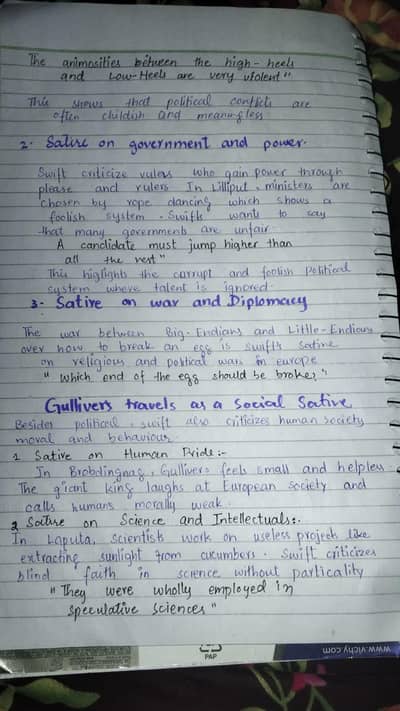 The animosities between the high-heels
and Low-Heels are very violent"
This shows that political conflicts are
often childish and meaningless
2. Satire on government and power.
Swift criticize rulers who gain power through
please and rulers In Lilliput, ministers are
chosen by rope dancing which shows a
foolish system. Swift wants to say
that many governments are unfair
A candidate must jump higher than
all the rest"
This higlights the corrupt and foolish Political
system where talent is ignored.
3- Sative on war and Diplomacy
The war between Big-Endians and Little-Endians
over how to break an egg is swifts Satire
on religious and political wars in europe
" which end of the egg should be broke, "
Gullivers travels as a Social Sative
Besides political, swift also criticizes human society
moral and behaviour
1 Sative on Human Pride:-
In Brobdingnag, Gullivers feels small and helpless
The giant king laughs at European society and
calls humans morally weak.
2 Satire on Science and Intellectuals:.
In Laputa, scientists work on useless projects like
extracting sunlight from cucumbers. Swift criticizes
blind faith in science without particality
"They were wholly employed in
speculative sciences"
PAP
www.vichy.com